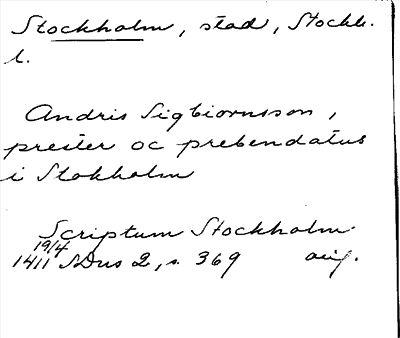 Stockholm, stad, Stockh.
l.
Andris Sigbiornsson,
prester oc prebendatus
i Stokholm
Scriptum Stockholm
19/4
1411 SDns 2, s. 369 orig.